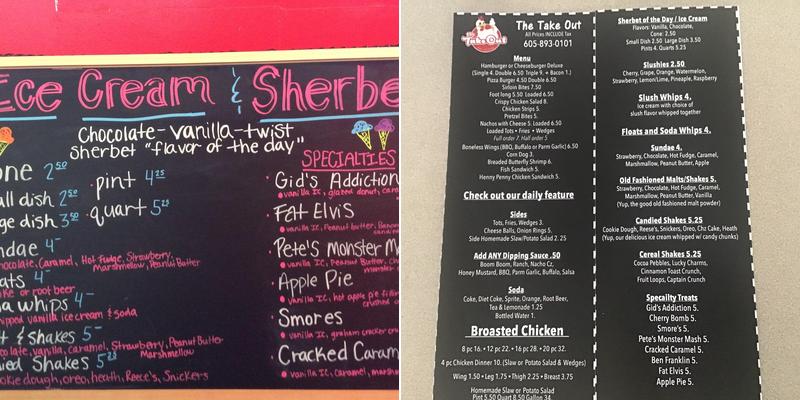 Ice Cream & Sherbe
Chocolate-vanilla-twist
Sherbet "flavor of the day"
one 2.50
all dish 2.50
ge dish 3.50
pint 4.25
quart 5.25
ndae 4-
hocolate, Caramel, Hot Fudge, Strawberry,
Marshmellow, Peanut Butter
oats 4-
oke or root beer
a whips 4-
hipped vanilla ice cream & soda
t & shakes 5-
colate, vanilla, caramel, Strawberry, Peanut Butter
Marshmellow
ied Shakes 5.25
okie dough, oreo, heath, Reece's, Snickers
SPECIALTIES
Gid's Addiction
vanilla IC, glazed donut, cara
Fat Elvis
vanilla IC, Peanut butter, Banan
Pete's Monster M
vanilla IC, Peanut Butter, Ch
Apple Pie
vanilla IC, hot apple pie filli
Smores
vanilla IC, graham cracker cru
Cracked Caram
vanilla IC, caramel, marshm
The Take Out
All Prices INCLUDE Tax
605-893-0101
The
Take Out
Menu
Hamburger or Cheeseburger Deluxe
(Single 4. Double 6.50 Triple 9. + Bacon 1.)
Pizza Burger 4.50 Double 6.50
Sirloin Bites 7.50
Foot long 5.50 Loaded 6.50
Crispy Chicken Salad 8.
Chicken Strips 5.
Pretzel Bites 5.
Nachos with Cheese 5. Loaded 6.50
Loaded Tots • Fries • Wedges
Full order 7. Half order 5.
Boneless Wings (BBQ, Buffalo or Parm Garlic) 6.50
Corn Dog 3.
Breaded Butterfly Shrimp 6.
Fish Sandwich 5.
Henny Penny Chicken Sandwich 5.
Check out our daily feature
Sides
Tots, Fries, Wedges 3.
Cheese Balls, Onion Rings 5.
Side Homemade Slaw/Potato Salad 2.25
Add ANY Dipping Sauce .50
Boom Boom, Ranch, Nacho Cz,
Honey Mustard, BBQ, Parm Garlic, Buffalo, Salsa
Soda
Coke, Diet Coke, Sprite, Orange, Root Beer,
Tea & Lemonade 1.25
Bottled Water 1.
Broasted Chicken
8 pc 16. • 12 pc 22. • 16 pc 28. • 20 pc 32.
4 pc Chicken Dinner 10. (Slaw or Potato Salad & Wedges)
Wing 1.50 • Leg 1.75 • Thigh 2.25 • Breast 3.75
Homemade Slaw or Potato Salad
Pint 5.50 Quart 8.50 Gallon 34.
Sherbet of the Day / Ice Cream
Flavors: Vanilla, Chocolate,
Cone: 2.50
Small Dish 2.50 Large Dish 3.50
Pints 4. Quarts 5.25
Slushies 2.50
Cherry, Grape, Orange, Watermelon,
Strawberry, Lemon'Lime, Pineaple, Raspberry
Slush Whips 4.
Ice cream with choice of
slush flavor whipped together
Floats and Soda Whips 4.
Sundae 4.
Strawberry, Chocolate, Hot Fudge, Caramel,
Marshmallow, Peanut Butter, Apple
Old Fashioned Malts/Shakes 5.
Strawberry, Chocolate, Hot Fudge, Caramel,
Marshmallow, Peanut Butter, Vanilla
(Yup, the good old fashioned malt powder)
Candied Shakes 5.25
Cookie Dough, Reese's, Snickers, Oreo, Chz Cake, Heath
(Yup, our delicious ice cream whipped w/ candy chunks)
Cereal Shakes 5.25
Cocoa Pebbles, Lucky Charms,
Cinnamon Toast Crunch,
Fruit Loops, Captain Crunch
Specailty Treats
Gid's Addiction 5.
Cherry Bomb 5.
Smore's 5.
Pete's Monster Mash 5.
Cracked Caramel 5.
Ben Franklin 5.
Fat Elvis 5.
Apple Pie 5.